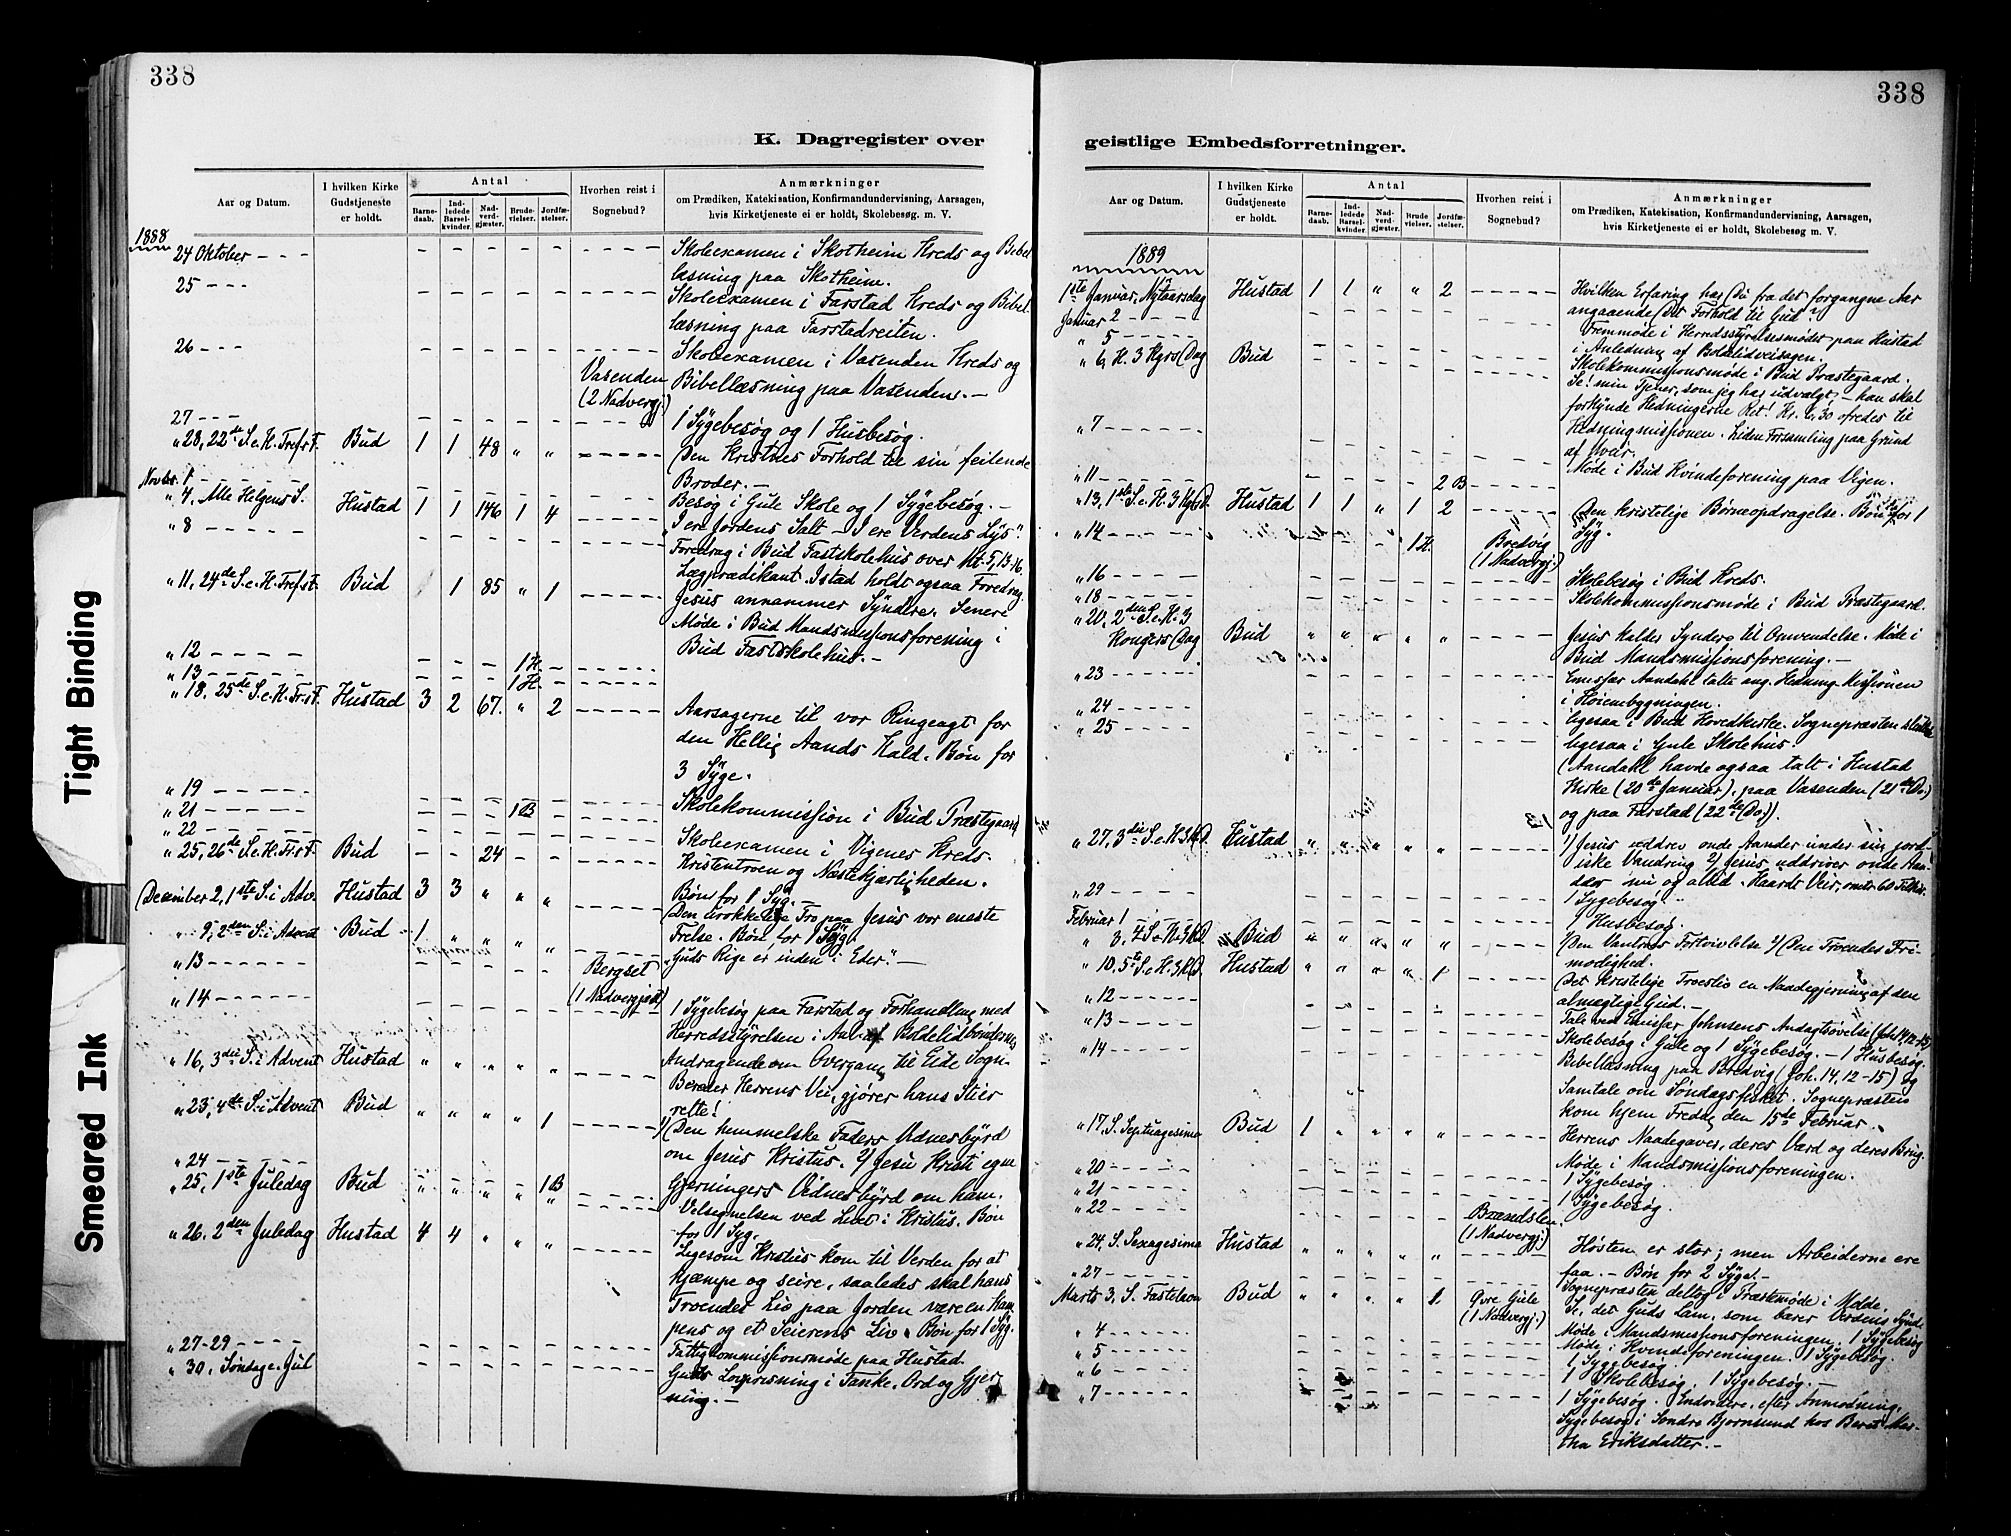 338
K. Dagregister over
Aar og Datum.
I hvilken Kirke Gudstjeneste er holdt.
Antal
Barnedaab.
Indledede Barselkvinder.
Nadverdgjæster.
Brudevielser.
Jordfæstelser.
Hvorhen reist i Sognebud?
Anmærkninger
om Prædiken, Katekisation, Konfirmandundervisning, Aarsagen,
hvis Kirketjeneste ei er holdt, Skolebesøg. m. V.
1888
24 Oktober - - - Skoleexamen i Skotheim Kreds og Bibel
læsning paa Skotheim.
25 - - - Skoleexamen i Farstad Kreds og Bibel
læsning paa Farstadreiten.
26 - - - Skoleexamen i Vasenden Kreds og
Vasenden Bibellæsning paa Vasenden. -
(2 Nadvergj.)
27 - - - 1 Sygebesøg og 1 Husbesøg.
" 28, 22de S. e. H. Tref. F. Bud 1 1 48 " " Den Kristnes Forhold til sin feilende
Broder. -
Novbr. 1 - - - Besøg i Gule Skole og 1 Sygebesøg. -
" 4, Alle Helgens S. Hustad 1 1 146 1 4 I ere Jordens Salt - I ere Verdens Lys".
" 8 - - - Foredrag i Bud Fastskolehus over Mt. 5, 13-16.
Lægprædikant Istad holdt ogsaa Foredrag.
" 11, 24de S. e. H. Tref. F. Bud 1 85 " 1 Jesus annammer Syndere. Senere
Møde i Bud Mandsmissionsforening i
Bud Fastskolehus. -
" 12 - - - 1 H.
" 13 - - - 1 H.
" 18, 25de S. e. H. Tr. f. F. Hustad 3 2 67. " 2 Aarsagerne til vor Ringeagt for
den Hellig Aands Kald. Bøn for
3 Syge.
" 19 - - -
" 21 - - - 1 B Skolekommission i Bud Præstegaard
" 22 - - - Skoleexamen i Vigenes Kreds.
" 25, 26de S. e. H. Tr. f. F. Bud - - 24 - - Kristentroen og Næstekjærligheden.
December 2, 1ste S. i Adv. Hustad 3 3 " " " Bøn for 1 Syg. -
Den urokkelige Tro paa Jesus vor eneste
" 9, 2den S. i Advent Bud 1 " " " " Frelse. Bøn for 1 Syg.
" 13 - - - Bergset "Guds Rige er inden i Eder." -
(1 Nadvergjest)
" 14 - - - 1 Sygebesøg paa Farstad og Forhandling med
Herredsstyrelsen i Anl. af Boldelidbøndernes
" 16, 3die S. i Advent Hustad " " " " " Andragende om Overgang til Eide Sogn.
Bereder Herrens Vei, gjører hans Stier
" 23, 4de S. i Advent Bud " " " " 1 rette!
1/ Den himmelske Faders Vidnesbyrd
" 24 - - - om Jesus Kristus. 2/ Jesu Kristi egne
" 25, 1ste Juledag Bud " " " " 1 B Gjerningers Vidnesbyrd om ham.
Velsignelsen ved Livet i Kristus. Bøn
" 26. 2den Juledag Hustad 4 4 " " " for 1 Syg.
Ligesom Kristus kom til Verden for at
kjæmpe og seire, saaledes skal hans
Troendes Liv paa Jorden være en Kam
pens og et Seierens Liv. Bøn for 1 Syg.
" 27-29 - - - Fattigkommissionsmøde paa Hustad.
" 30. Søndag e. Jul Guds Lovprisning i Tanke, Ord og Gjer
ning. -
338
geistlige Embedsforretninger.
Aar og Datum.
I hvilken Kirke Gudstjeneste er holdt.
Antal
Barnedaab.
Indledede Barselkvinder.
Nadverdgjæster.
Brudevielser.
Jordfæstelser.
Hvorhen reist i Sognebud?
Anmærkninger
om Prædiken, Katekisation, Konfirmandundervisning, Aarsagen,
hvis Kirketjeneste ei er holdt, Skolebesøg m. V.
1889
1ste Januar, Nytaarsdag Hustad 1 1 " " 2 Hvilken Erfaring har Du fra det forgangne Aar
angaaende Dit Forhold til Gud?
Januar 2 - - - Fremmøde i Herredsstyrelsesmødet paa Hustad
i Anledning af Boldlidveisagen.
" 5 - - - Skolekommissionsmøde i Bud Præstegaard.
" 6, H. 3 Kgrs Dag Bud Se! min Tjener, som jeg har udvalgt - han skal
forkynde Hedningerne Ret! Kr. 6,30 ofredes til
Hedningmissionen. Liden Forsamling paa Grund
af Uveir.
" 7 - - - Møde i Bud Kvindeforening paa Vigen.
" 11 - - - 2 B
" 13, 1ste S. e. H. 3 Kgr D. Hustad 1 1 " 1 2 Den kristelige Børneopdragelse. Bøn for 1
Syg.
" 14 - - - 1 H. Bredvig
(1 Nadvergj.)
" 16 - - - Skolebesøg i Bud Kreds.
" 18 - - - Skolekommissionsmøde i Bud Præstegaard.
" 20, 2den S. e. H. 3
Kongers Dag Bud " " " " " Jesus kalder Syndere til Omvendelse. Møde i
Bud Mandsmissionsforening. -
" 23 - - - Emissær Aandahl talte ang. Hedning-Missionen
i Høiembygningen.
" 24 - - - ligesaa i Bud Hovedkirke. Sognepræsten sluttede
" 25 - - - ligesaa i Gule Skolehus.
(Aandahl havde ogsaa talt i Hustad
Kirke (20de Januar), paa Vasenden (21de Do.)
og paa Farstad (22de Do.).
" 27, 3die S. e. H. 3 K D. Hustad " " " " " 1/ Jesus uddrev onde Aander under sin jord-
iske Vandring 2/ Jesus uddriver onde Aan-
der nu og altid. Haardt Veir, omtr. 60 Tilhør.
" 29 - - - 1 Sygebesøg. -
Februar 1 - - - 1 Husbesøg.
" 3, 4 S. e. H. 3 K D. Bud " " " " " 1/ Den Vantros Fortvivlelse 2/ Den Troendes Fri-
modighed.
" 10, 5te S. e. H. 3 K D. Hustad " " " " 1 Det kristelige Troesliv en Naadegjerning af den
almægtige Gud. -
" 12 - - - Tale ved Emissær Johnsens Andagtsøvelse (Joh 14,12-15)
" 13 - - - Skolebesøg i Gule og 1 Sygebesøg. - 1 Husbesøg.
" 14 - - - Bibellæsning paa Bredvig (Joh. 14, 12-15) og
Samtale om Søndagsfisket. Sognepræsten
kom hjem Fredag den 15de Februar.
" 17, S. Septuagesima Bud 1 " " " " Herrens Naadegaver, deres Værd og deres Brug.
" 20 - - - Møde i Mandsmissionsforeningen.
" 21 - - - 1 Sygebesøg
" 22 - - - 1 Sygebesøg.
(1 Nadvergj.)
" 24, S. Sexagesima Hustad " " " " " Høsten er stor; men Arbeiderne ere
faa. - Bøn for 2 Syge. -
" 27 - - - Sognepræsten deltog i Præstemøde i Molde.
Marts 3, S. Fastelavn Bud " " " " 1. Øvre Gule Se, det Guds Lam, som bærer Verdens Synd
(1 Nadvergj.)
" 4 - - - Møde i Mandsmissionsforeningen. 1 Sygebesøg
" 5 - - - Møde i Kvindeforeningen. 1 Sygebesøg.
" 6 - - - 1 Sygebesøg.
1 Skolebesøg. 1 Sygebesøg. -
" 7 - - - 1 Sygebesøg. Endvidere, efter Anmodning,
Sygebesøg i Søndre Bjørnsund hos Beret Mar-
tha Eriksdatter. -
Tight Binding
Smeared Ink